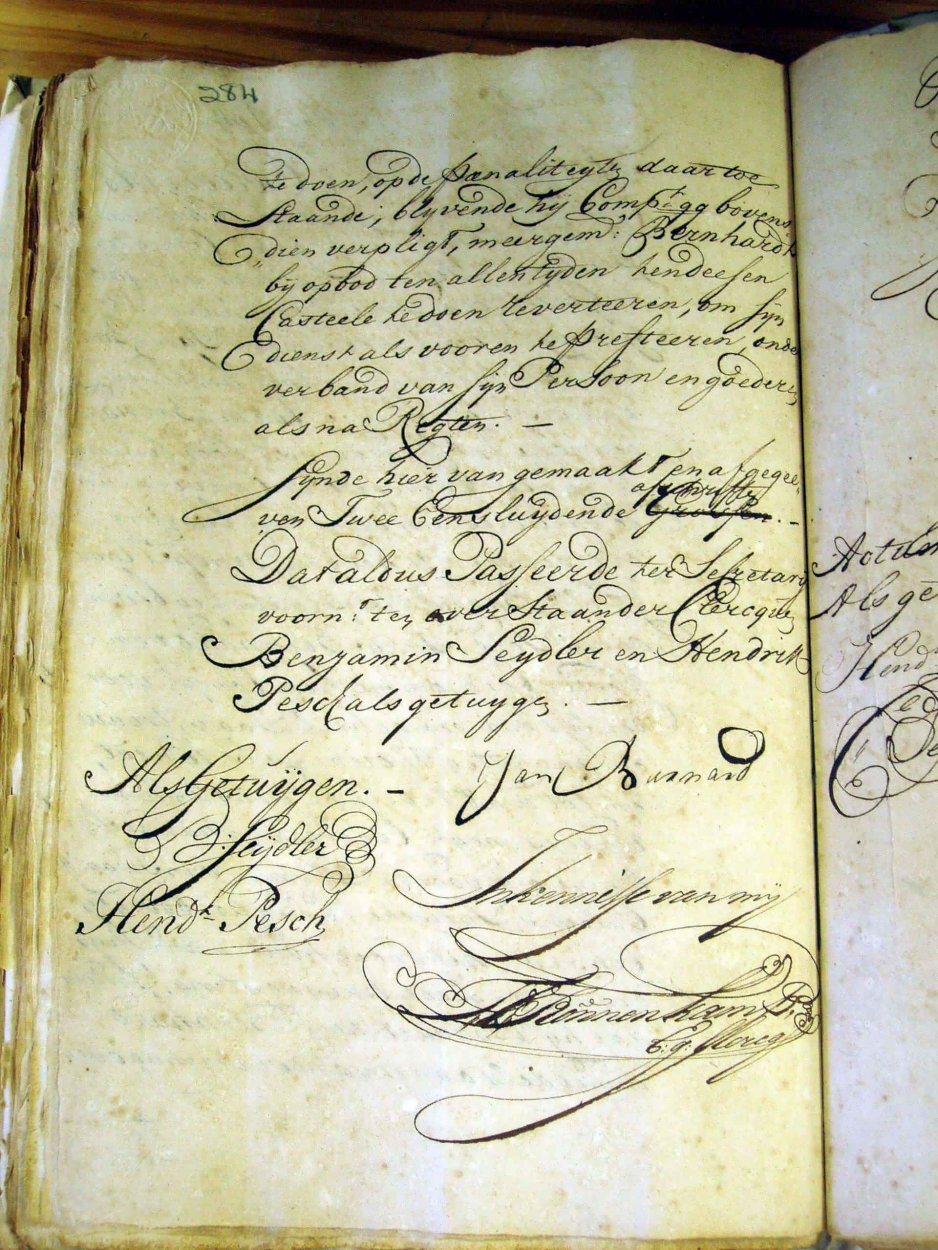 284
te doen, op de pænaliteyt daartoe
Staande; blyvende hij Compt: gg bovens
„dien verpligt, meergem: Bernhardt
by opbod ten allen tyden hendeesen
Casteele te doen reverteeren, om syn
dienst als vooren te presteeren, onde
verband van syn Persoon en goedere
als na Regten. —
Synde hier van gemaakt en afgegee„
afschriften
„ven Twee Eensluydende Grossen. —
Dat aldus Passeerde ter Secretary
voorn:t ten overstaan der Clercque
Benjamin Seydler en Hendrik
Pesch als getuygen. —
Als Getuijgen. —
Jan Barnard
B: Seijdler
Hendk Pesch
In kennisse van mij
E: g: Clercq
Actum
Als ge
Hend